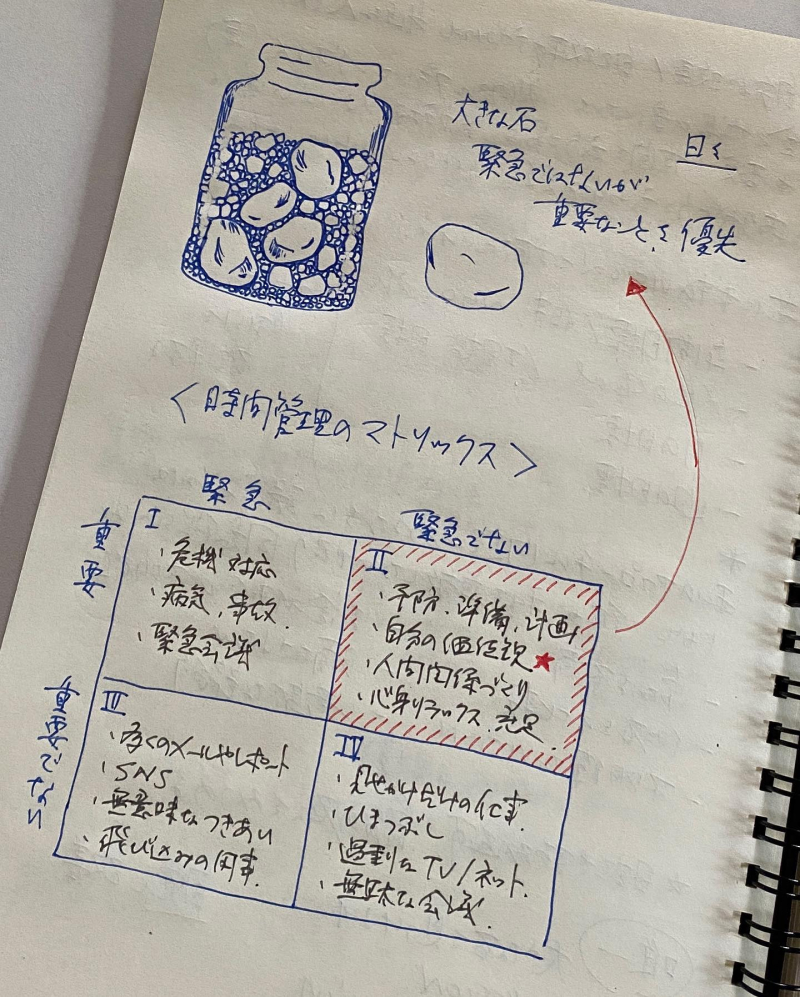 大きな石
日々
緊急ではないが
重要なことを優先
<時間管理のマトリックス>
緊急
緊急でない
重要
I
・危機対応
・病気、事故.
・緊急会議
II
・予防、準備、計画
・自分の価値観★
・人間関係づくり
・心身リラックス、充足.
重要でない
III
・多くのメールやレポート
・SNS
・無意味なつきあい
・飛び込みの用事.
IV
・見せかけだけの仕事.
・ひまつぶし
・過剰なTV/ネット.
・無駄な会議.
唯一